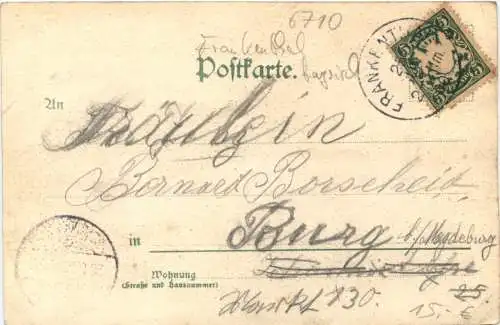 6710
Frankenthal
Postkarte.
bayrisch
FRANKENT
5 5
An
Fräulein
Bernard Borscheid
in Burg b/Magdeburg
Wohnung
(Straße und Hausnummer)
Markt 30.
25.
15,- €